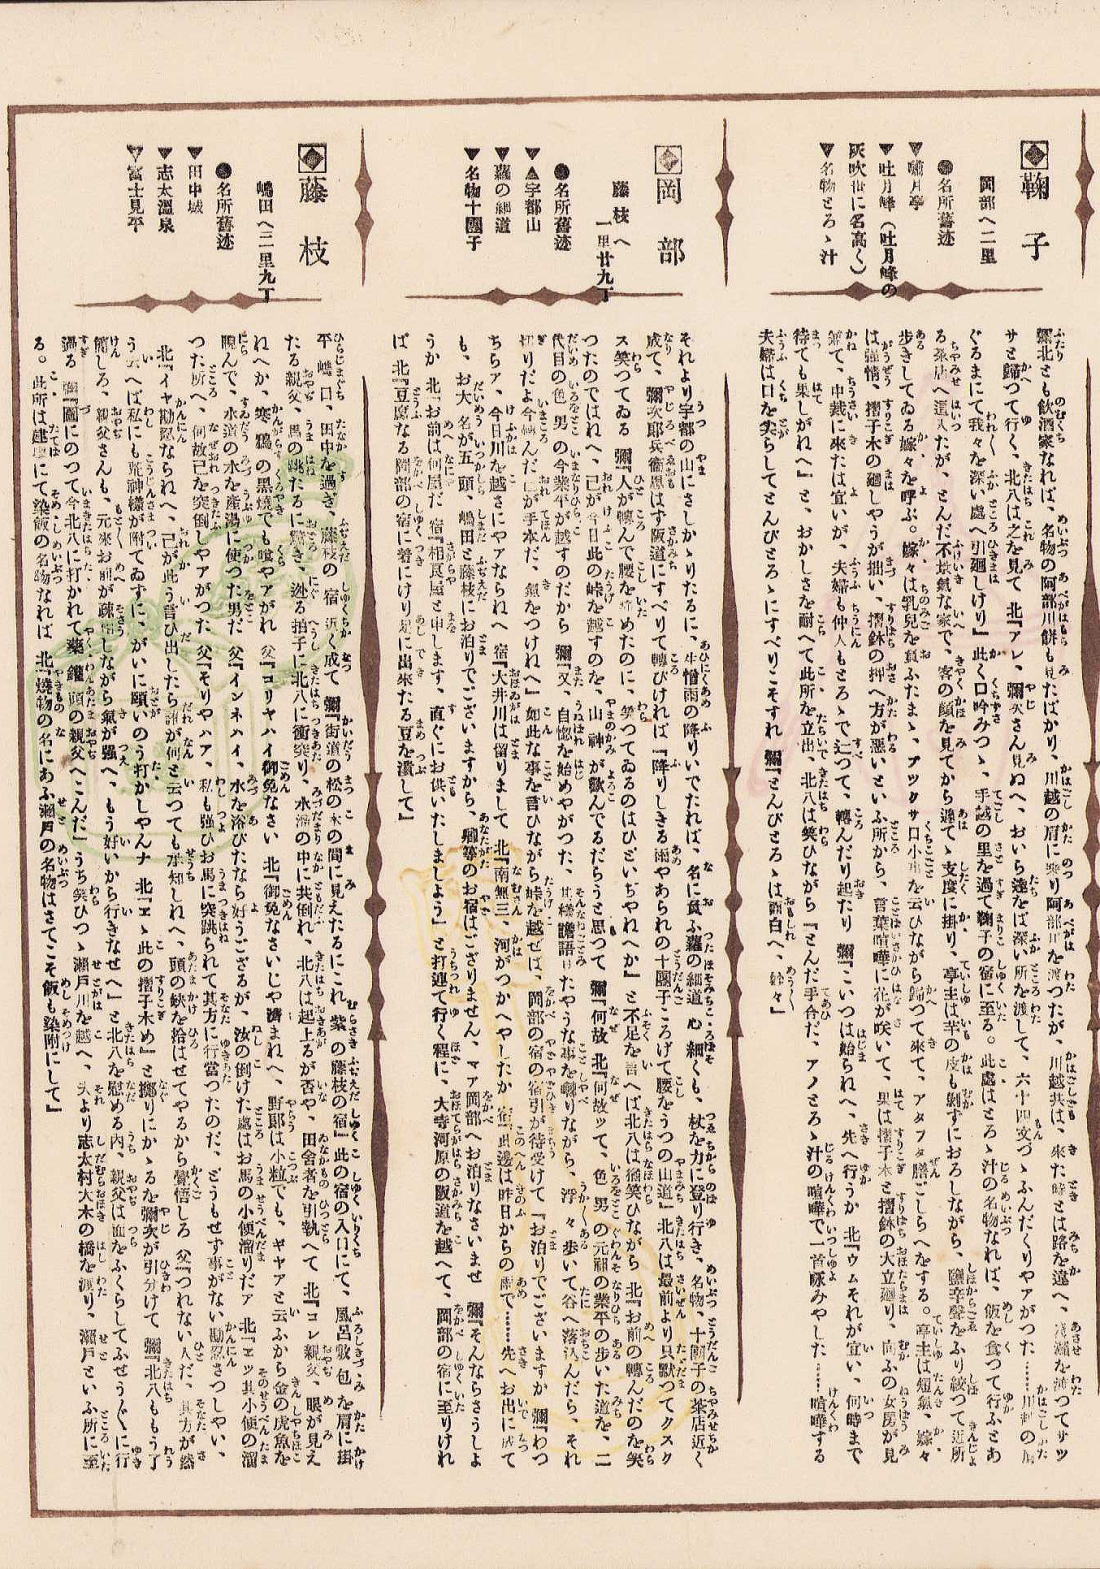 鞠子
岡部へ二里
●名所舊迹
▼嘯月亭
▼吐月峰（吐月峰の
灰吹世に名高く）
▼名物とろゝ汁
彌北とも飲酒家なれば、名物の阿部川餅も見たばかり、川越の肩に乘り阿部川を渡つたが、川越共は、來た時とは路を違へ、淺瀬を渉つてサツ
サと歸つて行く、北八は之を見て 北『アレ、彌次さん見ねへ、おいら達をば深い所を渡して、六十四文づゝふんだくりやアがつた……川越の肩
ぐるまにて我々を深い處へ引廻しけり』此く口吟みつゝ、手越の里を過て鞠子の宿に至る。此處はとろゝ汁の名物なれば、飯を食つて行ふとあ
る茶店へ這入たが、とんだ不景氣な家で、客の顔を見てから遽てゝ支度に掛り、亭主は芋の皮も剝ずにおろしながら、鹽辛聲をふり絞つて近所
歩きしてゐる嬶々を呼ぶ。嬶々は乳兒を負ふたまゝ、ブックサ口小言を云ひながら歸つて來て、アタフタ膳ごしらへをする。亭主は短氣、嬶々
は強情、摺子木の廻しやうが拙い、摺鉢の押へ方が悪いといふ所から、言葉喧嘩に花が咲いて、果は摺子木と摺鉢の大立廻り、向ふの女房が見
兼て、中裁に來たは宜いが、夫婦も仲人もとろゝで辷つて、轉んだり起たり 彌『こいつは始られへ、先へ行うか 北『ウムそれが宜い、何時まで
待ても果しがねへ』と、おかしさを耐へて此所を立出、北八は笑ひながら『とんだ手合だ、アノとろゝ汁の喧嘩で一首詠みやした……喧嘩する
夫婦は口を尖らしてとんびとろゝにすべりこそすれ 彌『とんびとろゝは面白へ、妙々』
岡部
藤枝へ
一里廿九丁
●名所舊迹
▼▲宇都山
▼蘿の細道
▼名物十團子
それより宇都の山にさしかゝりたるに、生憎雨の降りいでたれば、名に負ふ蘿の細道 心細くも、杖を力に登り行き、名物、十團子の茶店近く
成て、彌次郎兵衞思はず阪道にすべりて轉びければ『降りしきる雨やあられの十團子ころげて腰をうつの山道』北八は最前より只默つてクスク
ス笑つてゐる 彌『人が轉んで腰を痛めたのに、笑つてゐるのはひどいぢやねへか』と不足を言へば北八は微笑ひながら 北『お前の轉んだのを笑
つたのではねへ、己が今日此の峠を越すのを、山神が歡んでるだらうと思つて 彌『何故 北『何故ッて、色男の元祖の業平の歩いた道を、二
代目の色男の今業平が越すのだから 彌『又、自惚を始めやがつた、其樣譫語けたやうな事を囀りながら、浮々歩いて谷へ落込んだら、それ
切りだよ今轉んだ己が手本だ、氣をつけねへ』如此な事を言ひながら峠を越せば、岡部の宿の宿引が待受けて『お泊りでございますか 彌『わつ
ちらア、今日川を越さにやアならねへ 宿『大井川は留りまして 北『南無三、河がつかへやしたか 宿『此邊は昨日からの雨で……先へお出に成て
も、お大名が五ッ頭、嶋田と藤枝にお泊りでございますから、卿等のお宿はござりません、マア岡部へお泊りなさいませ 彌『そんならさうしよ
うか 北『お前は何屋だ 宿『相良屋と申します、直ぐにお供いたしましよう』と打連て行く程に、大寺河原の阪道を越へて、岡部の宿に至りけれ
ば 北『豆腐なる岡部の宿に着にけり足に出來たる豆を潰して』
藤枝
嶋田へ二里九丁
●名所舊迹
▼田中城
▼志太溫泉
▼富士見平
平嶋口、田中を過ぎ、藤枝の宿近く成て 彌『街道の松の木の間に見えたるにこれ紫の藤枝の宿』此の宿の入口にて、風呂敷包を肩に掛
たる親父、馬の跳たるに驚き、逊る拍子に北八に衝突り、水溜の中に共倒れ、北八は起上るが否や、田舎者を引執へて 北『コレ親父、眼が見え
ねへか、寒鴉の黒燒でも喰やアがれ 父『コリヤハイ御免なさい 北『御免なさいじや濟まれへ、野郎は小粒でも、ギヤアと云ふから金の虎魚を
睨んで、水道の水を産湯に使つた男だ 父『インネハイ、水を浴びたなら好うござるが、汝の倒けた處はお馬の小便溜りだア 北『エッ其小便の溜
つた所へ、何故己を突倒しやアがつた 父『そりやハア、私も強ひお馬に突跳られて其方に行當つたのだ、どうもせず事がない勘忍さつしやい、
北『イヤ勘忍ならねへ、己が此う言ひ出したら誰が何と云つても承知しねへ、頭の鉢を拾はせてやるから覺悟しろ 父『つれない人だ、其方が然
う云へば私にも荒神樣が附てゐずに、がいに頤いのう打かしやんナ 北『エゝ此の摺子木め』と擲りにかゝるを彌次が引分けて 彌『北八ももう了
簡しろ、親父さんも、元來お前が疎匆しながら氣が強へ、もう好いから行きなせへ』と北八を慰める内、親父は面をふくらしてふせう〴〵に行
過る 彌『圖にのつて今北八に打かれて藥鑵頭の親父へこんだ』うち笑ひつゝ瀬戸川を越へ、夫より志太村大木の橋を渡り、瀬戸といふ所に至
る。此所は建場にて染飯の名物なれば 北『燒物の名にあふ瀬戸の名物はさてこそ飯も染附にして』